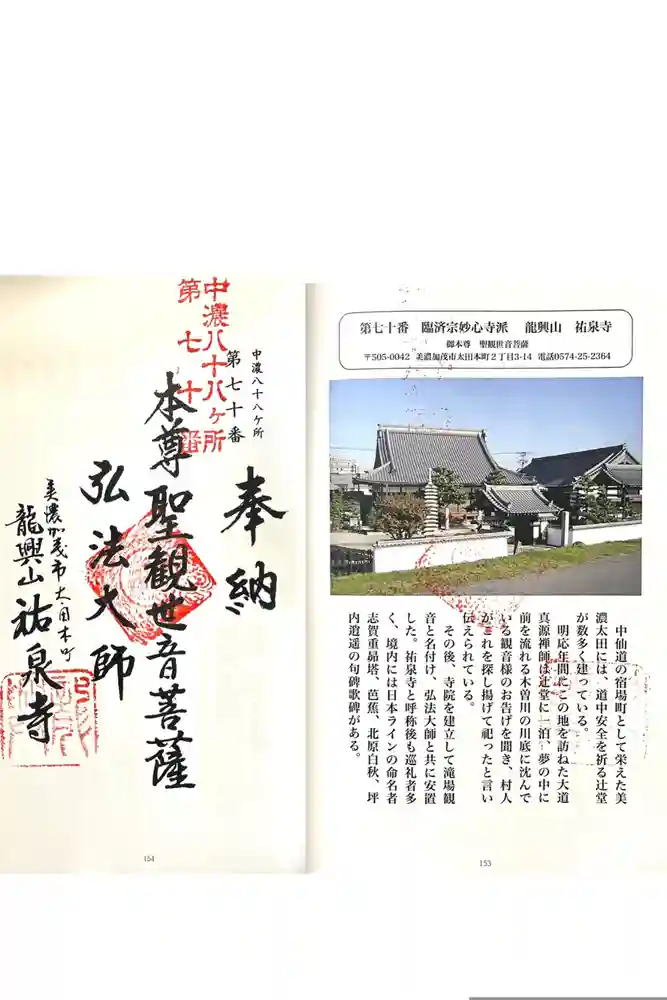 第七十番　臨済宗妙心寺派　龍興山　祐泉寺
御本尊　聖観世音菩薩
〒505-0042　美濃加茂市太田本町２丁目3-14　電話0574-25-2364
中仙道の宿場町として栄えた美
濃太田には、道中安全を祈る辻堂
が数多く建っている。
明応年間にこの地を訪ねた大道
真源禅師は辻堂に一泊、夢の中に
前を流れる木曽川の川底に沈んで
いる観音様のお告げを聞き、村人
がこれを探し揚げて祀ったと言い
伝えられている。
その後、寺院を建立して滝場観
音と名付け、弘法大師と共に安置
した。祐泉寺と呼称後も巡礼者多
く、境内には日本ラインの命名者
志賀重昴塔、芭蕉、北原白秋、坪
内逍遥の句碑歌碑がある。
153
中濃八十八ケ所
第七十番
中濃八十八ヶ所
第七十番
奉納
本尊聖観世音菩薩
弘法大師
美濃加茂市太田本町
龍興山祐泉寺
154